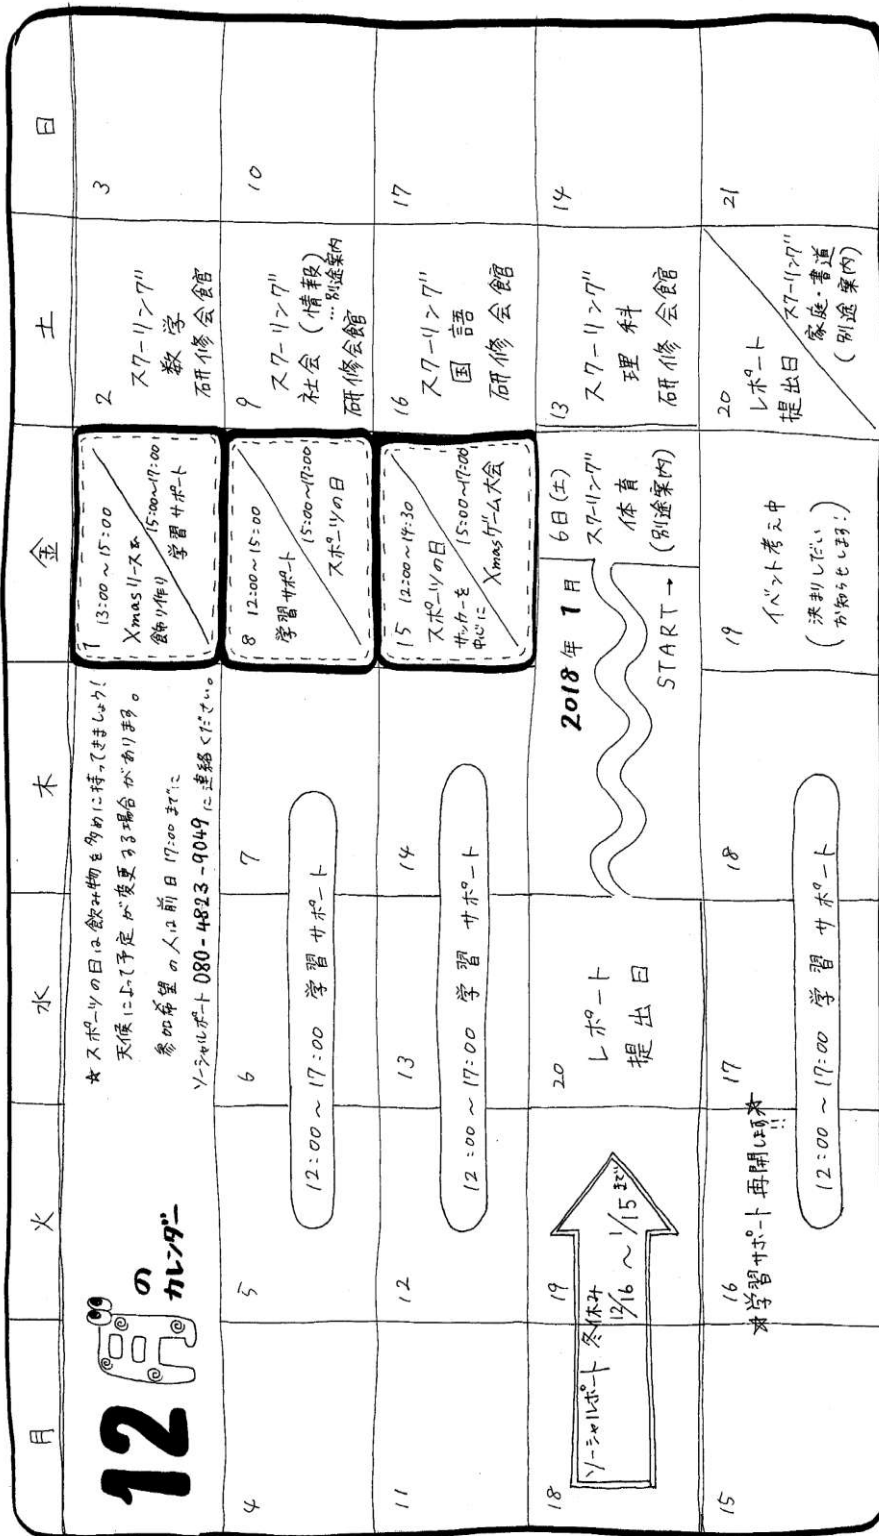 月 火 水 木 金 土 日
12月の
カレンダー
★スポーツの日は飲み物を多めに持ってきましょう!
天候によって予定が変更する場合があります。
参加希望の人は前日17:00までに
ソーシャルポート 080-4823-9049 に連絡ください。
1
13:00~15:00
Xmasリース&
飾り作り
15:00~17:00
学習サポート
2
スクーリング
数学
研修会館
3
4
5
6
7
12:00~17:00 学習サポート
8
12:00~15:00
学習サポート
15:00~17:00
スポーツの日
9
スクーリング
社会(情報)
…別途案内
研修会館
10
11
12
13
14
12:00~17:00 学習サポート
15
12:00~14:30
スポーツの日
サッカーを
中心に
15:00~17:00
Xmasゲーム大会
16
スクーリング
国語
研修会館
17
18
19
ソーシャルポート 冬休み
12/16~1/15まで
20
レポート
提出日
2018年1月
START→
6日(土)
スクーリング
体育
(別途案内)
13
スクーリング
理科
研修会館
14
15
16
★学習サポート再開します★!!
17
18
12:00~17:00 学習サポート
19
イベント考え中
(決まりしだい
お知らせします!)
20
レポート
提出日
スクーリング
家庭・書道
(別途案内)
21